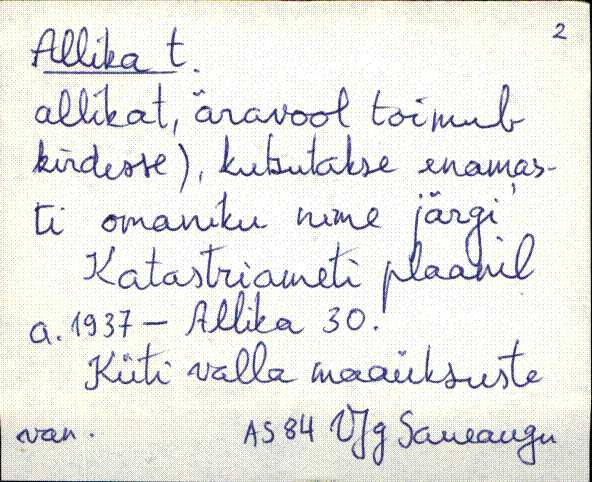 2
Allika t.
allikat, äravool toimub
kirdesse), kutsutakse enamas-
ti omaniku nime järgi
Katastriameti plaanil
a. 1937 – Allika 30.
Küti valla maaüksuste
van. AS 84 VJg Saueaugu